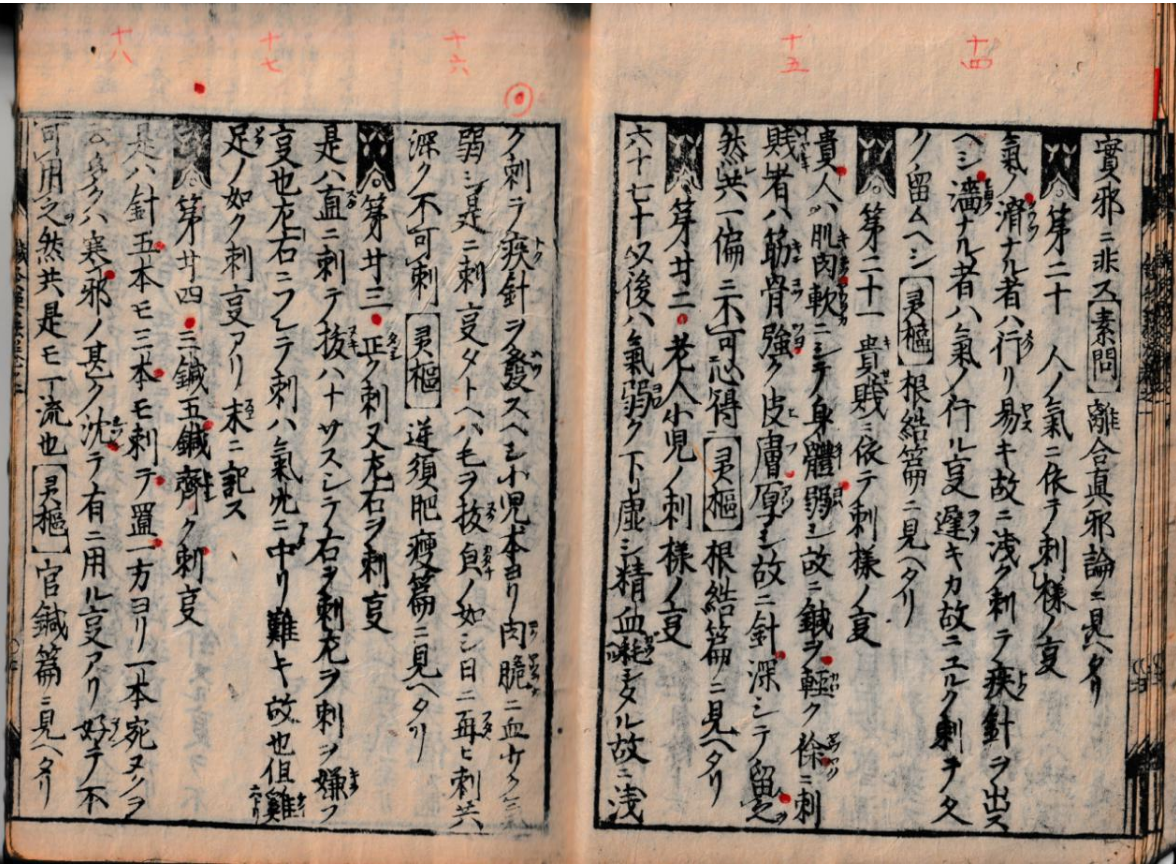 十四
十五
實邪ニ非ス【素問】離合真邪論ニ見ヘタリ
第二十 人ノ氣ニ依テ刺様ノ㕝
氣ノ滑ナル者ハ行リ易キ故ニ浅ク刺テ疾針ヲ出ス
ヘシ濇ナル者ハ氣ノ行ル㕝遅キカ故ニ深ク刺テ久
ク留ムヘシ【灵樞】根結篇ニ見ヘタリ
第二十一 貴賤ニ依テ刺様ノ㕝
貴人ハ肌肉軟ニシテ身體弱シ故ニ鍼ヲ輕ク徐ニ刺
賤者ハ筋骨強ク皮膚厚シ故ニ針深シテ留之
然共一偏ニ不可心得【灵樞】根結篇ニ見ヘタリ
第廿二 老人小児ノ刺様ノ㕝
六十七十以後ハ氣弱ク下リ虚シ精血耗シタル故ニ浅
十六
十七
十八
ク刺テ疾針ヲ發スヘシ小児本ヨリ肉脆ニ血少ク氣
弱シ是ニ刺㕝タトヘハ毛ヲ抜㒵ノ如シ日ニ再ヒ刺共
深ク不可刺【灵樞】逆須肥痩篇ニ見ヘタリ
第廿三 正ク刺又左右ヲ刺㕝
是ハ直ニ刺テ抜ハナサスシテ右ヲ刺左ヲ刺ヲ嫌フ
㕝也左右ニフレテ刺ハ氣穴ニ中リ難キ故也但雞
足ノ如ク刺㕝アリ末ニ記ス
第廿四 三鍼五鍼齊ク刺㕝
是ハ針五本モ三本モ刺テ置一方ヨリ一本宛ヌクヲ
云 ハ寒邪ノ甚ク沈テ有ニ用ル㕝アリ好テ不
可用之然共是モ一流也【灵樞】官鍼篇ニ見ヘタリ